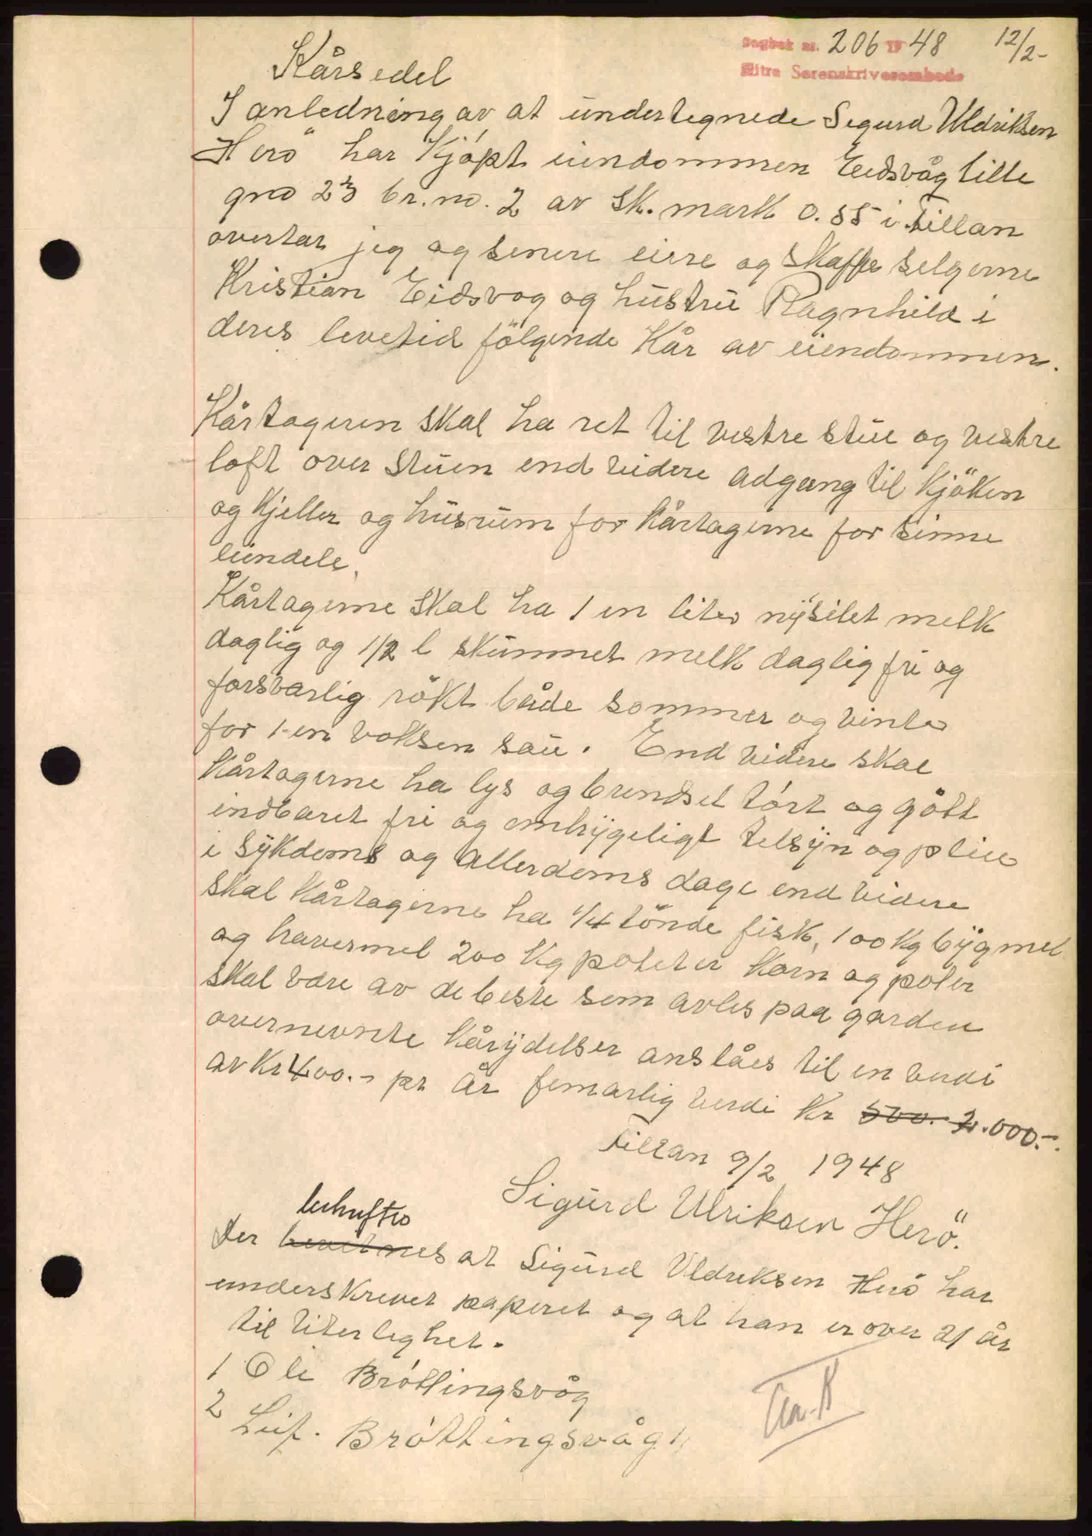 Dagbok nr. 206 19 48 12/2-
Hitra Sorenskriverembede
Kårsedel
I anledning av at undertegnede Sigurd Uldriksen
Herö har Kjöpt eiendommen Eidsvåg lille
gno 23 br. no. 2 av sk. mark 0.55 i Fillan
overtar jeg og senere eiere og skaffe selgerne
Kristian Eidsvog og hustru Ragnhild i
deres levetid følgende Kår av eiendommen.
Kårtageren skal ha ret til vestre stue og vestre
loft over stuen end videre adgang til Kjöken
og Kjeller og husrum for Kårtagerne for sinne
eiendele.
Kårtagerne skal ha 1 en liter nysilet melk
daglig og 1/2 l skummet melk daglig fri og
forsvarlig rökt både sommer og vinter
for 1-en voksen sau. End videre skal
Kårtagerne ha lys og brendsel tört og gött
indbaret fri og omhygeligt tilsyn og pleie
i Sykdoms og allerdoms dage end videre
skal Kårtagerne ha 1/4 tönde fisk, 100 Kg bygmel
og havermel 200 Kg poteter Korn og poter
skal være av de beste som avles paa garden
overnevnte Kårydelser anslåes til en verdi
av Kr 400.- pr år femårlig verdi Kr 500.- 2.000.-.
Fillan 9/2 1948
Sigurd Ulriksen Herö.
bekreftes
Der bevitnes at Sigurd Uldriksen Herö har
underskrevet paperet og at han er over 21 år
til literlighet.
1 Oli Bröttingsvåg
2 Leif. Bröttingsvåg